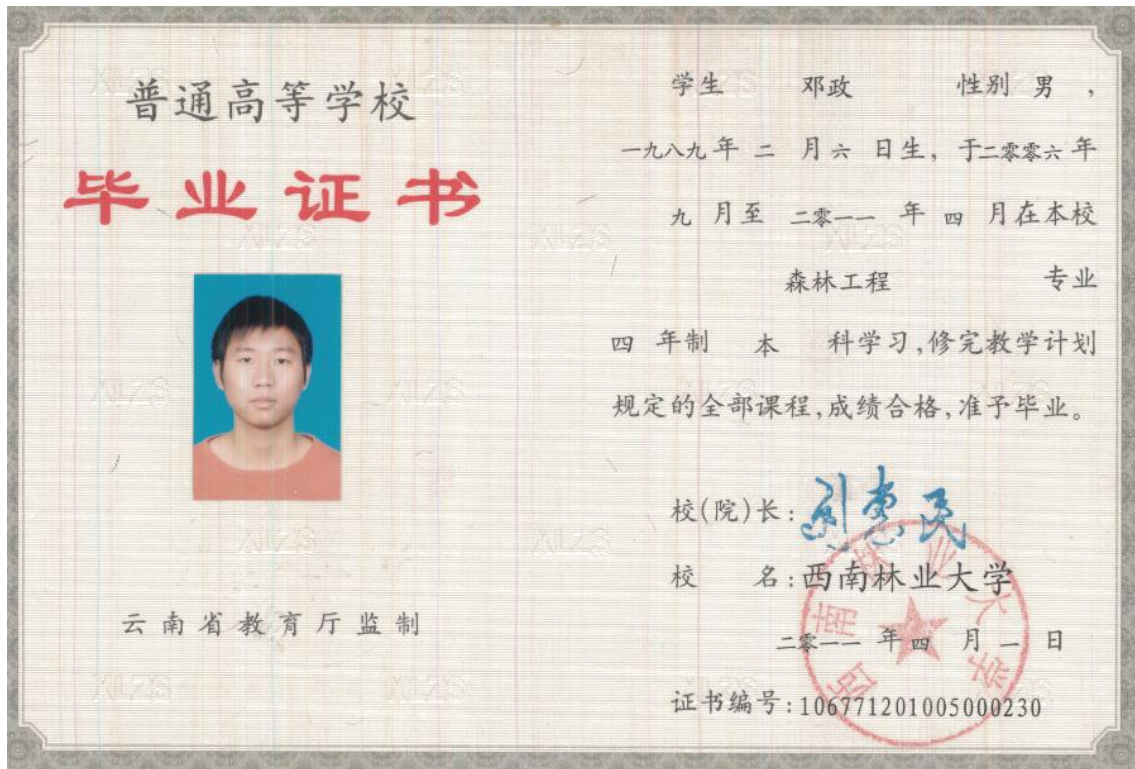 普通高等学校
毕业证书
云南省教育厅监制
学生 邓政 性别 男，
一九八九年 二 月六 日生，于二零零六年
九 月至 二零一一 年 四 月在本校
森林工程 专业
四 年制 本 科学习，修完教学计划
规定的全部课程，成绩合格，准予毕业。
校(院)长：刘惠民
校 名：西南林业大学
西南林业大学
二零一一 年 四 月 一 日
证书编号：106771201005000230
XLZS